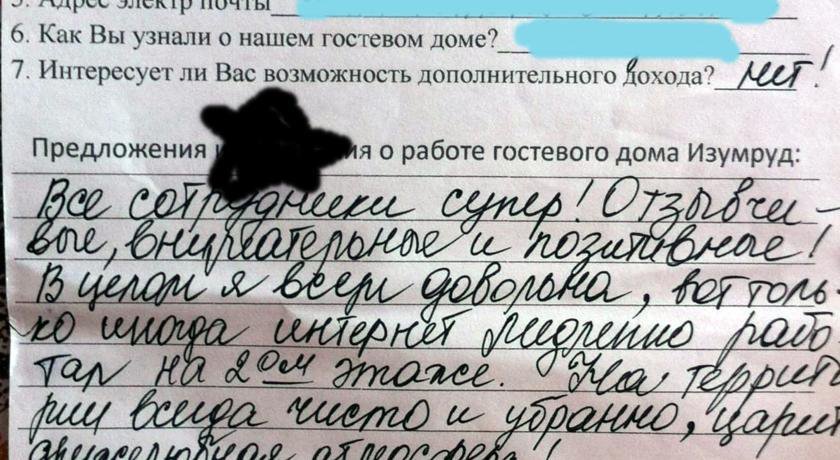 5. Адрес электр почты
6. Как Вы узнали о нашем гостевом доме?
7. Интересует ли Вас возможность дополнительного дохода? нет!
Предложения ия о работе гостевого дома Изумруд:
Все сотрудники супер! Отзывчи-
вые, внимательные и позитивные!
В целом я всем довольна, вот толь-
ко иногда интернет медленно рабо
тал на 2ом этаже. На террит
рии всегда чисто и убранно, царит
дружелюбная атмосфера!